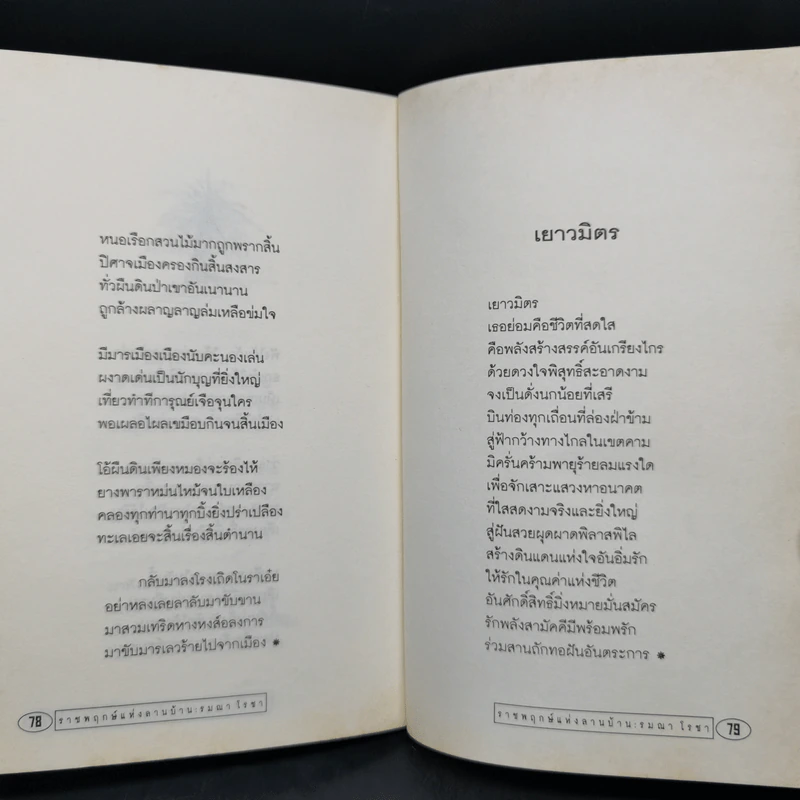 หนอเรือกสวนไม้มากถูกพรากสิ้น
ปีศาจเมืองครองกินสิ้นสงสาร
ทั่วผืนดินป่าเขาอันเนานาน
ถูกล้างผลาญลาญล่มเหลือข่มใจ
มีมารเมืองเนืองนับคะนองเล่น
ผงาดเด่นเป็นนักบุญที่ยิ่งใหญ่
เที่ยวทำทีการุณย์เจือจุนใคร
พอเผลอไผลเขมือบกินจนสิ้นเมือง
โอ้ผืนดินเพียงหมองจะร้องไห้
ยางพาราหม่นไหม้จนใบเหลือง
คลองทุกท่านาทุกบิ้งยิ่งปร่าเปลือง
ทะเลเอยจะสิ้นเรื่องสิ้นตำนาน
กลับมาลงโรงเถิดโนราเอ๋ย
อย่าหลงเลยลาลับมาขับขาน
มาสวมเทริดหางหงส์อลงการ
มาขับมารเลวร้ายไปจากเมือง *
78 ราชพฤกษ์แห่งลานบ้าน:รมณา โรชา
เยาวมิตร
เยาวมิตร
เธอย่อมคือชีวิตที่สดใส
คือพลังสร้างสรรค์อันเกรียงไกร
ด้วยดวงใจพิสุทธิ์สะอาดงาม
จงเป็นดั่งนกน้อยที่เสรี
บินท่องทุกเถื่อนที่ล่องฝ่าข้าม
สู่ฟ้ากว้างทางไกลในเขตคาม
มิครั่นคร้ามพายุร้ายลมแรงใด
เพื่อจักเสาะแสวงหาอนาคต
ที่ใสสดงามจริงและยิ่งใหญ่
สู่ฝันสวยผุดผาดพิลาสพิไล
สร้างดินแดนแห่งใจอันอิ่มรัก
ให้รักในคุณค่าแห่งชีวิต
อันศักดิ์สิทธิ์มิ่งหมายมั่นสมัคร
รักพลังสามัคคีมีพร้อมพรัก
ร่วมสานถักทอฝันอันตระการ *
ราชพฤกษ์แห่งลานบ้าน:รมณา โรชา 79